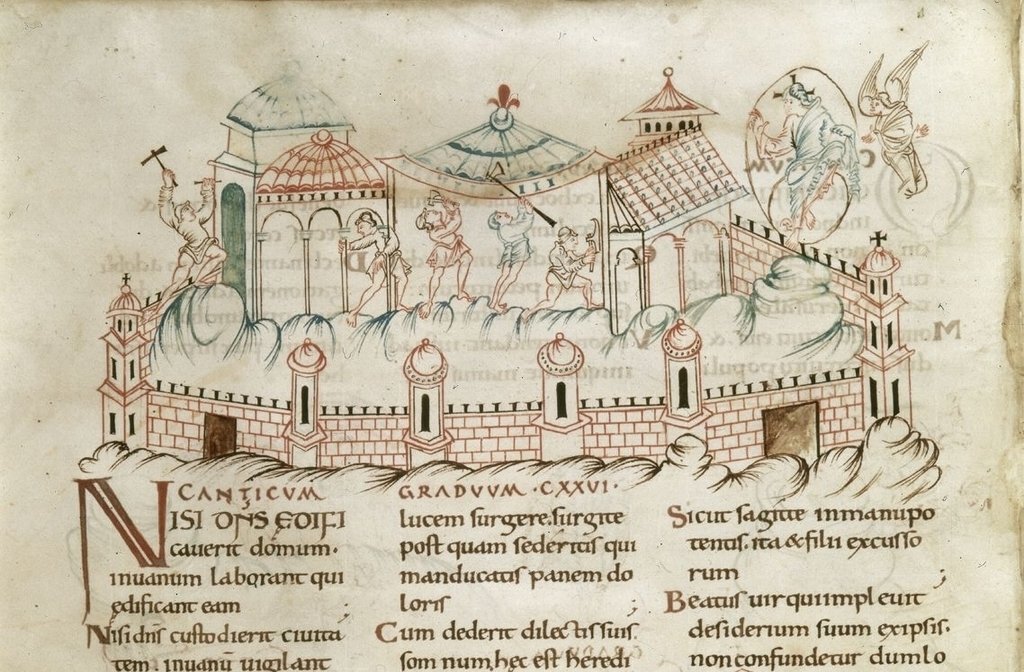 CANTICUM
NISI DNS EDIFI
cauerit domum.
inuanum laborant qui
edificant eam
Nisi dns custodierit ciuita
tem. inuanu uigilant
GRADUUM · CXXVI ·
lucem surgere. surgite
post quam sederitis qui
manducatis panem do
loris
Cum dederit dilectis suis
somnum, hec est heredi
Sicut sagitte inmanu po
tentis. ita & filii excusso
rum
Beatus uir qui impleuit
desiderium suum ex ipsis.
non confundetur dum lo